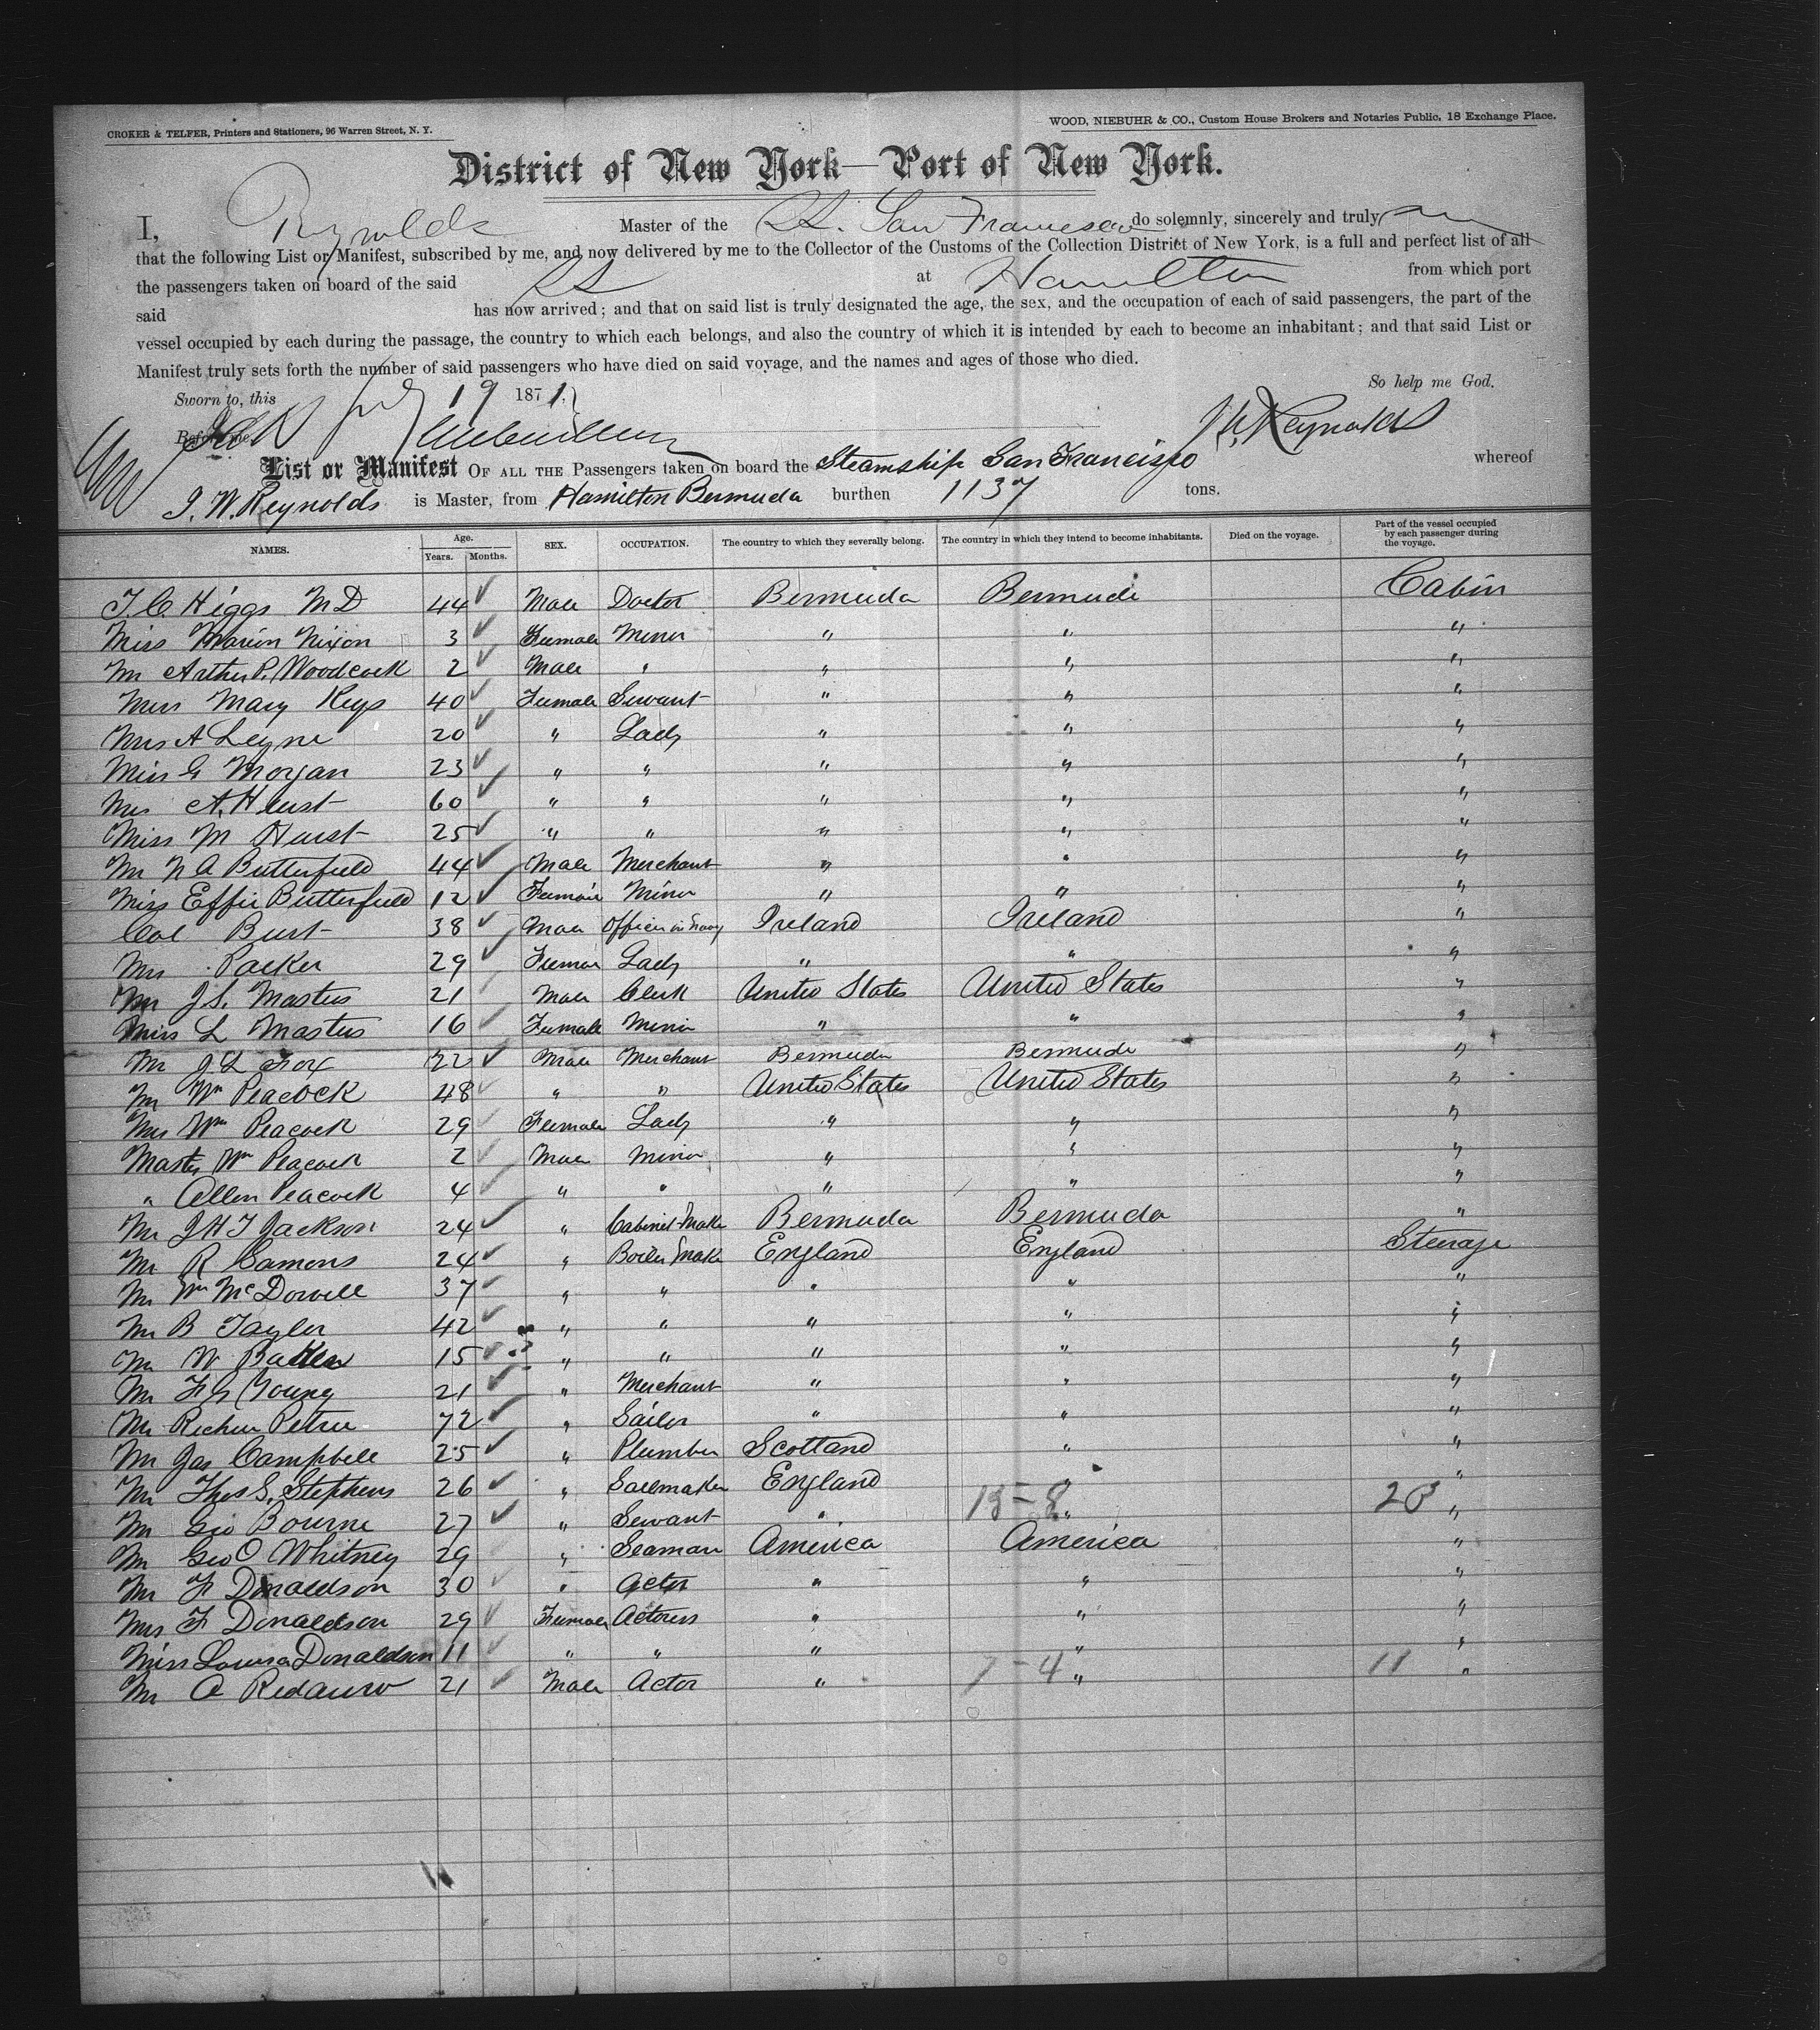 CROKER & TELFER, Printers and Stationers, 96 Warren Street, N. Y.
WOOD, NIEBUHR & CO., Custom House Brokers and Notaries Public, 18 Exchange Place.
District of New York—Port of New York.
I, Reynolds Master of the SS. San Francisco do solemnly, sincerely and truly
that the following List or Manifest, subscribed by me, and now delivered by me to the Collector of the Customs of the Collection District of New York, is a full and perfect list of all
the passengers taken on board of the said SS at Hamilton from which port
said has now arrived; and that on said list is truly designated the age, the sex, and the occupation of each of said passengers, the part of the
vessel occupied by each during the passage, the country to which each belongs, and also the country of which it is intended by each to become an inhabitant; and that said List or
Manifest truly sets forth the number of said passengers who have died on said voyage, and the names and ages of those who died.
So help me God.
Sworn to, this 19 1871,
Before me J. W. Reynolds
List or Manifest OF ALL THE Passengers taken on board the Steamship San Francisco whereof
J. W. Reynolds is Master, from Hamilton Bermuda burthen 1137 tons.
NAMES. Age. Years. Months. SEX. OCCUPATION. The country to which they severally belong. The country in which they intend to become inhabitants. Died on the voyage. Part of the vessel occupied by each passenger during the voyage.
T. C Higgs MD 44 Male Doctor Bermuda Bermuda Cabin
Miss Marion Nixon 3 Female Minor " " "
Mr Arthur P. Woodcock 2 Male " " " "
Mrs Mary Keys 40 Female Servant " " "
Mrs A Leyne 20 " Lady " " "
Miss G Morgan 23 " " " " "
Mrs A. Hurst 60 " " " " "
Miss M Hurst 25 " " " " "
Mr N A Butterfield 44 Male Merchant " " "
Miss Effie Butterfield 12 Female Minor " " "
Col Burt 38 Male Officer in Navy Ireland Ireland "
Mrs Parker 29 Female Lady " " "
Mr J S. Masters 21 Male Clerk United States United States "
Miss L Masters 16 Female Minor " " "
Mr J L Fox 22 Male Merchant Bermuda Bermuda "
Mr Wm Peacock 48 " " United States United States "
Mrs Wm Peacock 29 Female Lady " " "
Master Wm Peacock 2 Male Minor " " "
" Allen Peacock 4 " " " " "
Mr J H T Jackson 24 " Cabinet Maker Bermuda Bermuda "
Mr R Samons 24 " Boiler Maker England England Steerage
Mr Wm McDowell 37 " " " " "
Mr B Tayler 42 " " " " "
Mr W Baker 15 " " " " "
Mr F G Young 21 " Merchant " " "
Mr Petrie 72 " Sailor " " "
Mr Jas Campbell 25 " Plumber Scotland " "
Mr Thos S. Stephens 26 " Sailmaker England " "
Mr Geo Bourne 27 " Servant " 15-8 " "
Mr Geo O Whitney 29 " Seaman America America "
Mr F Donaldson 30 " Actor " " "
Mrs F Donaldson 29 Female Actress " " "
Miss Louisa Donaldson 11 " " " " "
Mr A 21 Male Actor " 7-4 " 11 "